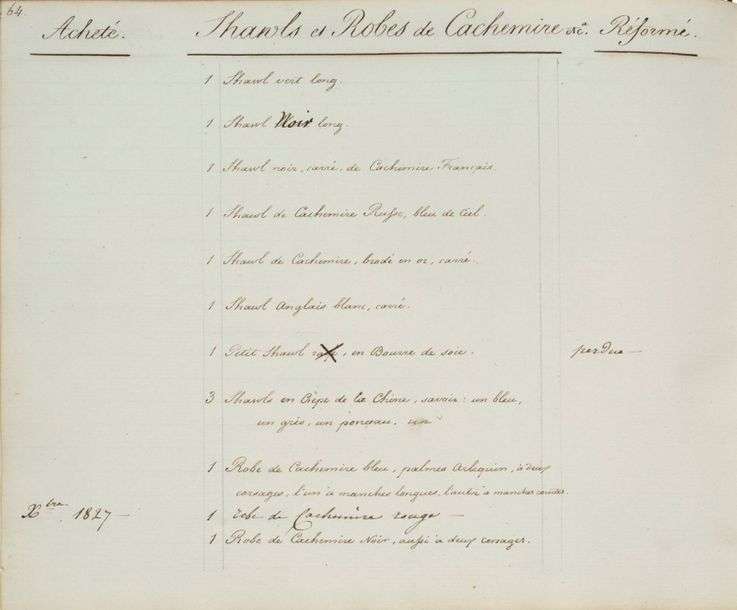 64.
Acheté. Shawls et Robes de Cachemire etc. Réformé.
1 Shawl vert long.
1 Shawl Noir long.
1 Shawl noir, carré, de Cachemire Français.
1 Shawl de Cachemire Russe, bleu de Ciel.
1 Shawl de Cachemire, brodé en or, carré.
1 Shawl Anglais blanc, carré.
1 Petit Shawl, en Bourre de soie. perdue —
3 Shawls en Crêpe de la Chine, savoir: un bleu,
un gris, un ponceau. un
1 Robe de Cachemire bleu, palmes Arlequin, à deux
corsages, l'un à manches longues, l'autre à manches courtes.
Xbre 1827 — 1 robe de Cachemire rouge —
1 Robe de Cachemire Noir, aussi à deux corsages.